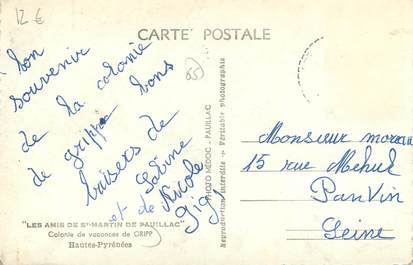 12 €
CARTE POSTALE
bon
souvenir
de la colonie
de gripp bons
baisers de
et de Nicole
Gigi
65
PHOTO MÉDOC - PAUILLAC
Reproduction interdite - Véritable photographie
Monsieur moreau
15 rue Mehul
PanVin
Seine
"LES AMIS DE St-MARTIN DE PAUILLAC"
Colonie de vacances de GRIPP
Hautes-Pyrénées